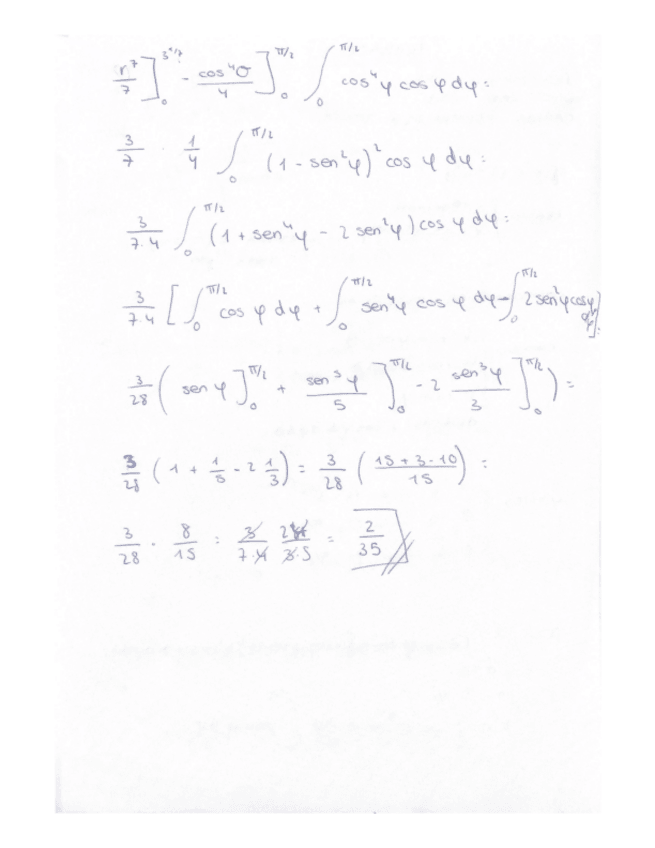 r⁷/7 ]₀^{3^{1/7}} - cos⁴σ/4 ]₀^{π/2} ∫₀^{π/2} cos⁴φ cos φ dφ =
3/7 · 1/4 ∫₀^{π/2} (1 - sen²φ)² cos φ dφ =
3/7·4 ∫₀^{π/2} (1 + sen⁴φ - 2 sen²φ) cos φ dφ =
3/7·4 [ ∫₀^{π/2} cos φ dφ + ∫₀^{π/2} sen⁴φ cos φ dφ - ∫₀^{π/2} 2 sen²φ cos φ dφ ] =
3/28 ( sen φ ]₀^{π/2} + sen⁵φ/5 ]₀^{π/2} - 2 sen³φ/3 ]₀^{π/2} ) =
3/28 ( 1 + 1/5 - 2 1/3 ) = 3/28 ( 15 + 3 - 10 / 15 ) =
3/28 · 8/15 = 3/7·4 2·4/3·5 = 2/35